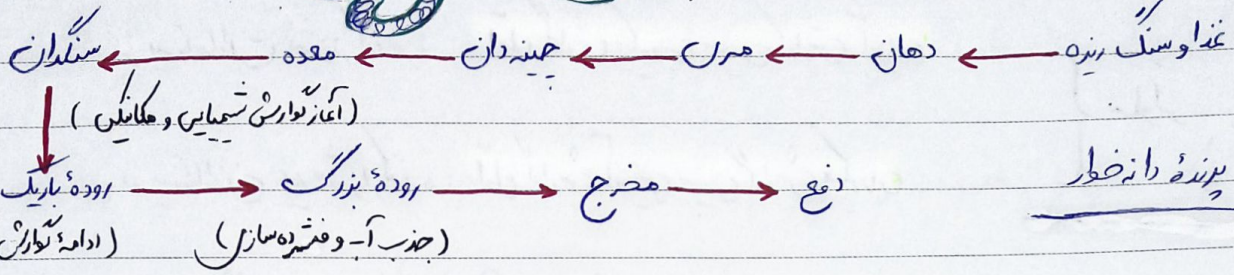 غذا و سنگ ریزه ← دهان ← مری ← چینه دان ← معده ← سنگدان
(آغاز گوارش شیمیایی و مکانیکی)
پرندهٔ دانه خوار
رودهٔ باریک → رودهٔ بزرگ → مخرج → دفع
(ادامهٔ گوارش (جذب آب و فشرده سازی)